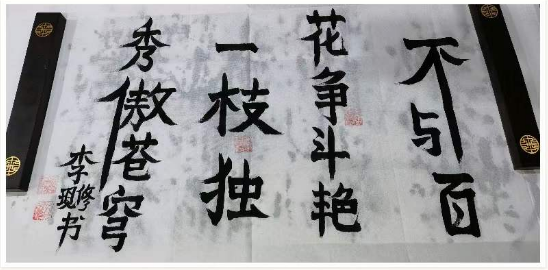 不与百
花争斗艳
一枝独
秀傲苍穹
李修现书